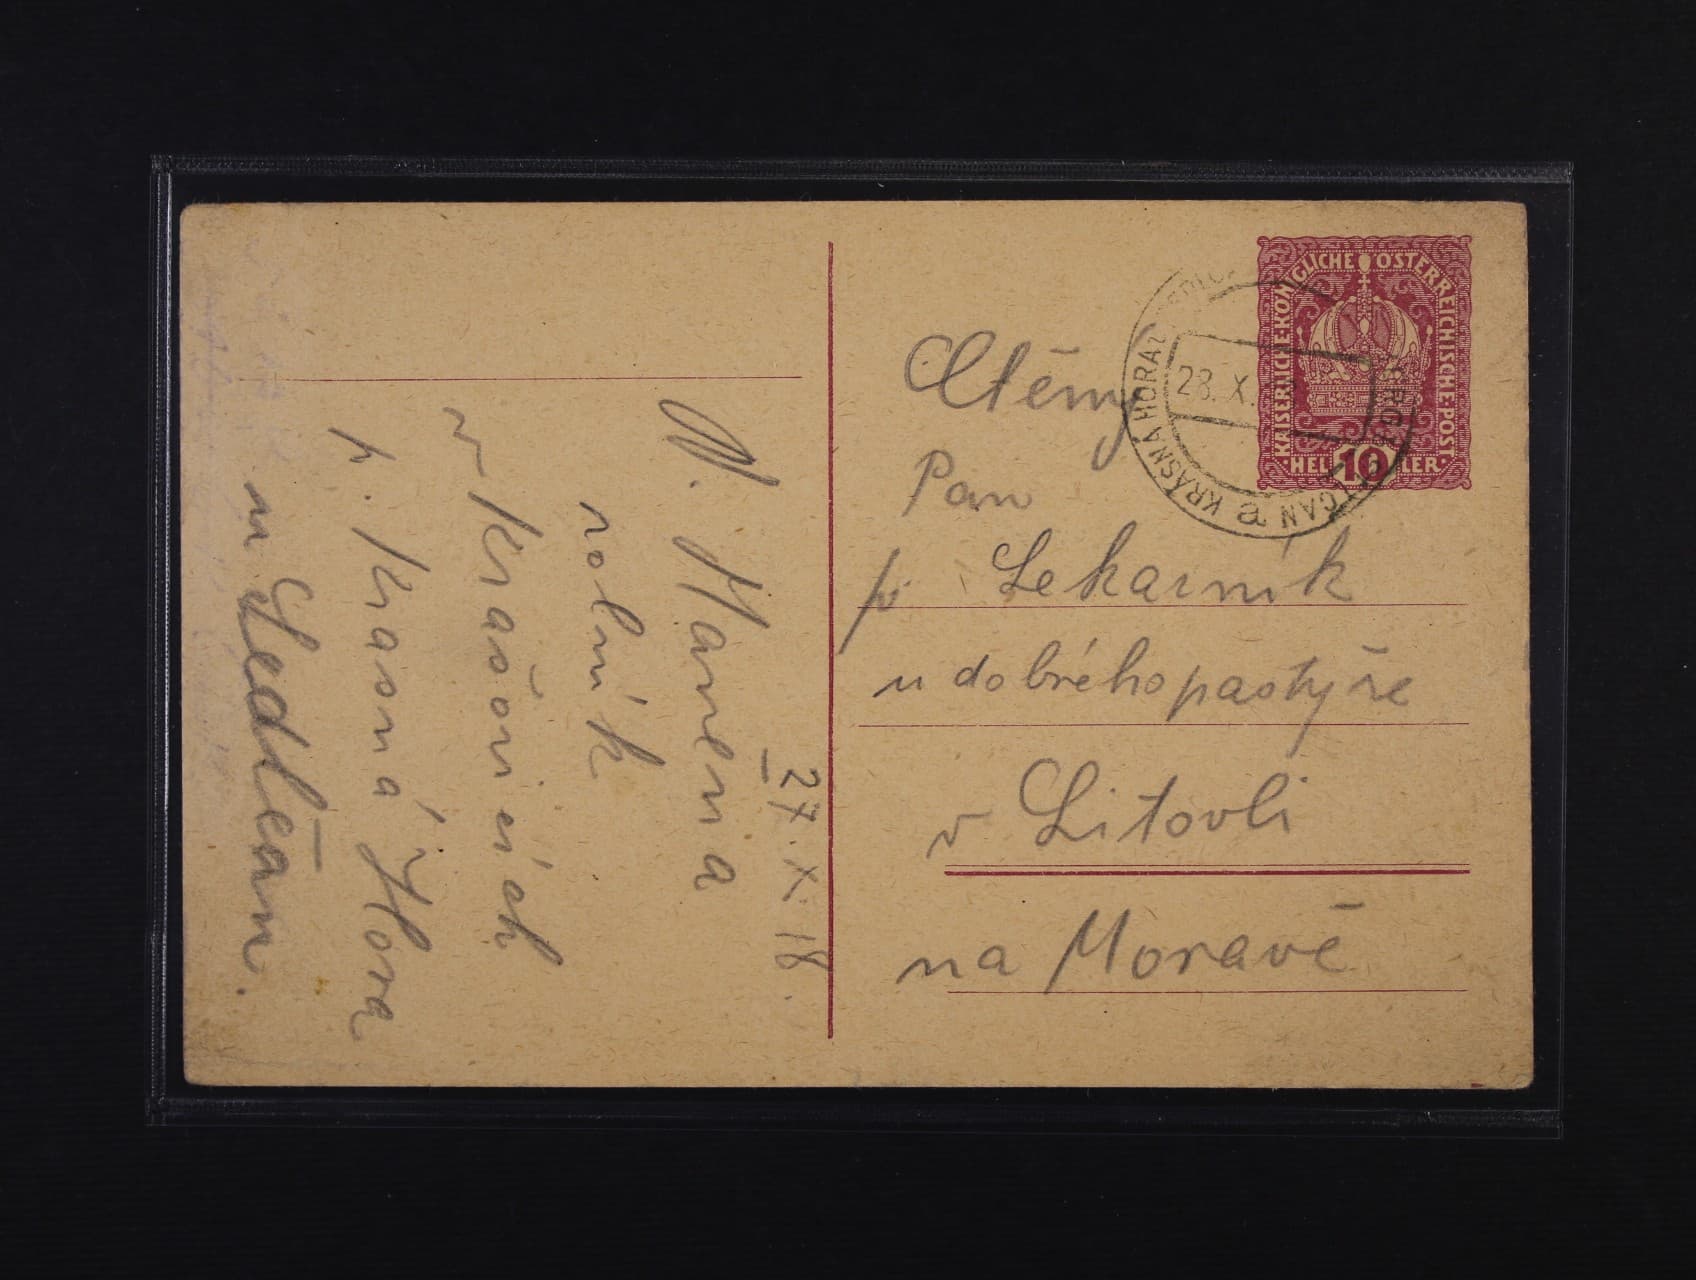 KAISERLICHE·KÖNIGLICHE ÖSTERREICHISCHE·POST
·HEL 10 LER·
KRÁSNÁ HORA
28. X.
a
Ctěný
Pan
p. Lekarník
u dobrého pastýře
v Litovli
na Moravě
27. X. 18.
V. Havena
rolník
v Krašovicích
p. Krasná Hora
u Sedlčan.